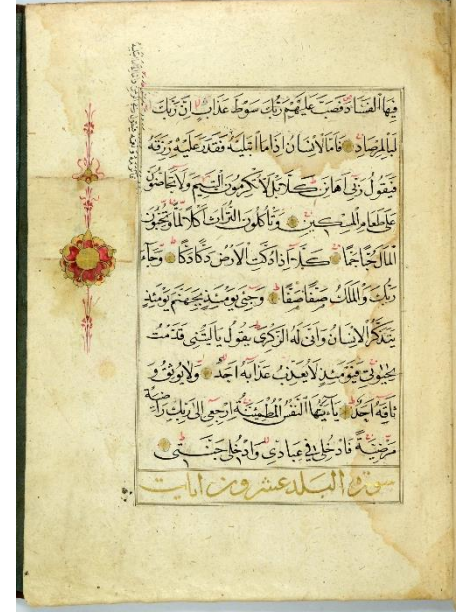 فِيهَا الْفَسَادَ فَصَبَّ عَلَيْهِمْ رَبُّكَ سَوْطَ عَذَابٍ اِنَّ رَبَّكَ
لَبِالْمِرْصَادِ فَاَمَّا الْاِنْسَانُ اِذَا مَا ابْتَلٰيهُ فَقَدَرَ عَلَيْهِ رِزْقَهُ
فَيَقُولُ رَبِّي اَهَانَنِ كَلَّا بَلْ لَا تُكْرِمُونَ الْيَتِيمَ وَلَا تَحَاضُّونَ
عَلٰى طَعَامِ الْمِسْكِينِ وَتَأْكُلُونَ التُّرَاثَ اَكْلًا لَمًّا وَتُحِبُّونَ
الْمَالَ حُبًّا جَمًّا كَلَّا اِذَا دُكَّتِ الْاَرْضُ دَكًّا دَكًّا وَجَآءَ
رَبُّكَ وَالْمَلَكُ صَفًّا صَفًّا وَجِيءَ يَوْمَئِذٍ بِجَهَنَّمَ يَوْمَئِذٍ
يَتَذَكَّرُ الْاِنْسَانُ وَاَنّٰى لَهُ الذِّكْرٰى يَقُولُ يَا لَيْتَنِي قَدَّمْتُ
لِحَيٰوتِي فَيَوْمَئِذٍ لَا يُعَذِّبُ عَذَابَهُ اَحَدٌ وَلَا يُوثِقُ وَ
ثَاقَهُ اَحَدٌ يَآ اَيَّتُهَا النَّفْسُ الْمُطْمَئِنَّةُ ارْجِعِي اِلٰى رَبِّكِ رَاضِيَةً
مَرْضِيَّةً فَادْخُلِي فِي عِبَادِي وَادْخُلِي جَنَّتِي
سورة البلد عشرون ايات